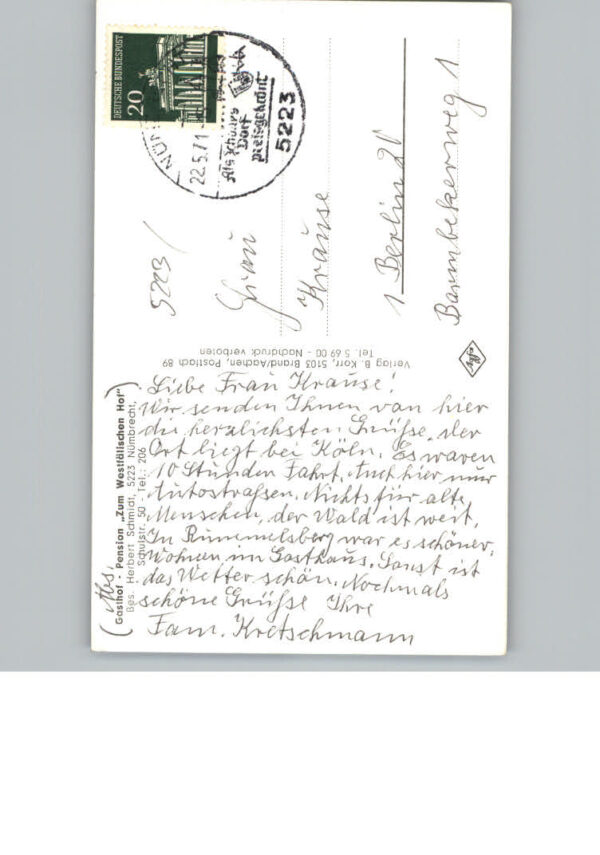 DEUTSCHE BUNDESPOST
20
22.5.71
Als schönes
Dorf
preisgekrönt
5223
5223
Frau
Krause
1 Berlin 20
Barmbekerweg 1
Verlag B. Korr, 5103 Brand/Aachen, Postfach 89
Tel. 5 69 00 - Nachdruck verboten
(Abs.
Gasthof - Pension „Zum Westfälischen Hof")
Bes. Herbert Schmidt, 5223 Nümbrecht,
Schulstr. 50 - Tel.: 206
Liebe Frau Krause!
Wir senden Ihnen von hier
die herzlichsten Grüße, der
Ort liegt bei Köln. Es waren
10 Stunden Fahrt. Auch hier nur
Autostraßsen. Nichts für alte
Menschen, der Wald ist weit,
In Rummelsberg war es schöner,
Wohnen im Gasthaus. Sonst ist
das Wetter schön. Nochmals
schöne Grüße Ihre
Fam. Kretschmann